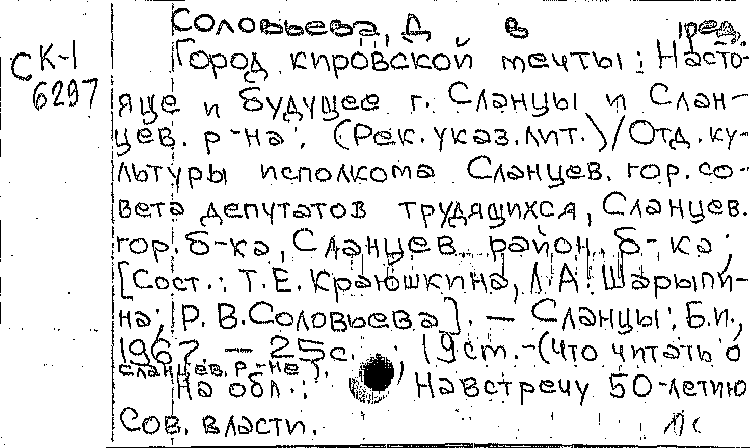 Соловьева, Д в ред.
СК-1
6297
Город кировской мечты: Насто-
яще и будущее г. Сланцы и Слан-
цев. р-на: (Рек. указ. лит.)/Отд. ку-
льтуры исполкома Сланцев. гор. со-
вета депутатов трудящихся, Сланцев.
гор. б-ка, Сланцев. район. б-ка;
[Сост.: Т.Е. Краюшкина, Л.А. Шарыпи-
на; Р.В. Соловьева]. — Сланцы: Б.и.,
1967. — 25с. 19см. - (Что читать о
сланцев. р-не).
На обл.: Навстречу 50-летию
Сов. власти.